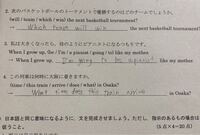 2. 次のバスケットボールのトーナメントで優勝するのはどのチームでしょうか。
(will / team / which / win) the next basketball tournament?
→ Which team will win the next basketball tournament?
3. 私は大きくなったら、母のようにピアニストになるつもりです。
When I grow up, (be / I'm / a pianist / going / to) like my mother
→ When I grow up, I'm going to be a pianist like my mother
4. この列車は何時に大阪に着きますか。
(time / this train / arrive / does / what) in Osaka?
→ What time does this train arrive in Osaka?
日本語と同じ意味になるように、文を完成させましょう。ただし、指示のある場合は
従うこと。
(5点×4=20点)